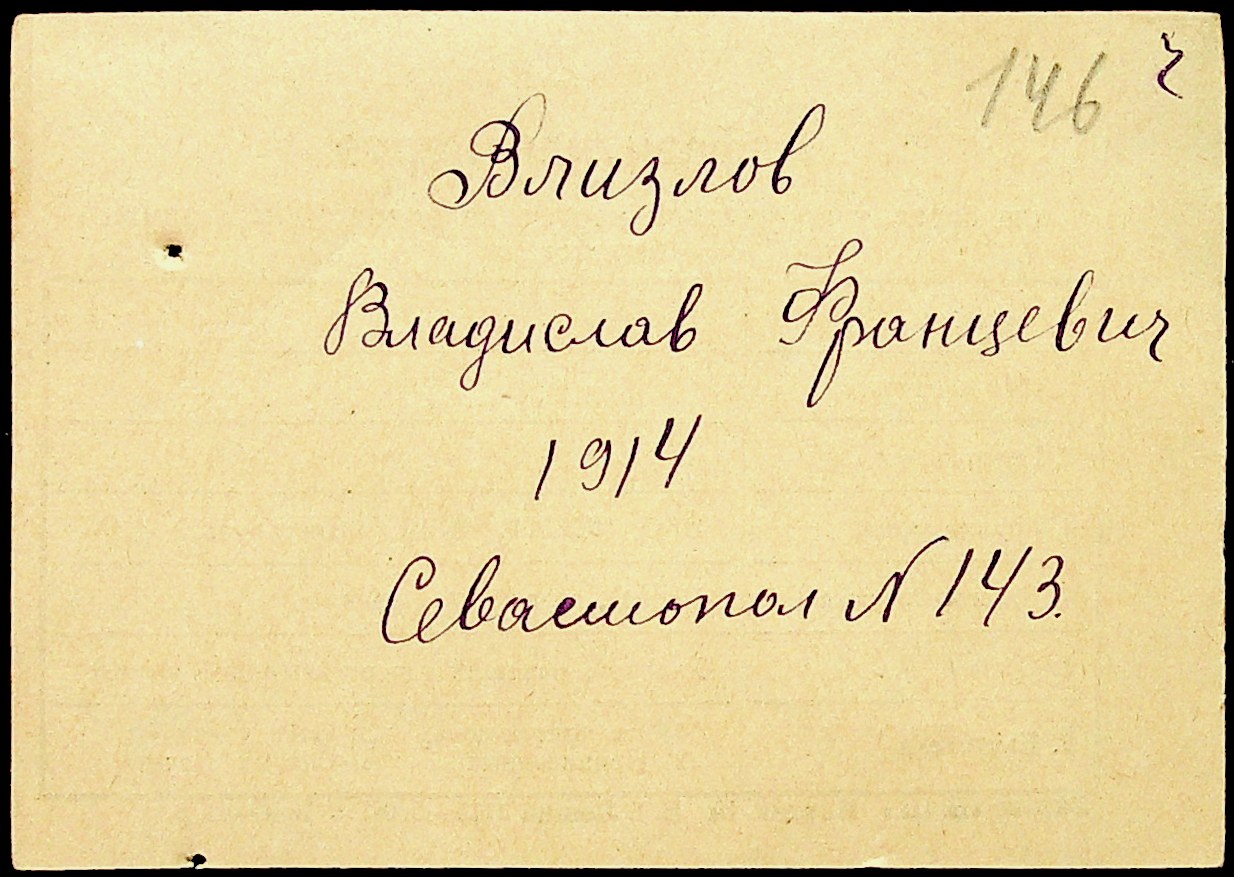 146 ч
Влизлов
Владислав Францевич
1914
Севастопол N 143.